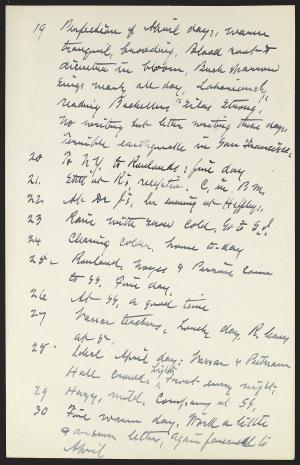 19 Perfection of April days, warm
tranquil, brooding, Blood root &
dicentra in bloom, Bush sparrow
sings nearly all day,
reading Bachellers "Silas Strong,"
No writing but letter writing these days.
Terrible earthquake in San Francisco.
20 To N.Y. to Rowlands; fine day
21. at R's, C. in B.M.
22. At Dr J's, in evening at
23 Rain with snow cold, Go to
24 Clearing colder, home to-day
25- Rowland, Noyes & come
to SS, Fine day.
26 At SS, a good time
27 Vassar teachers, Lovely day, R. leaves
at
28. Ideal April day; Vassar & Putnam
Hall crowd, light frost every night,
29 Hazy, mild, Company at SS,
30 Fine warm day, Work a little
& answer letters, Again farewell to
April